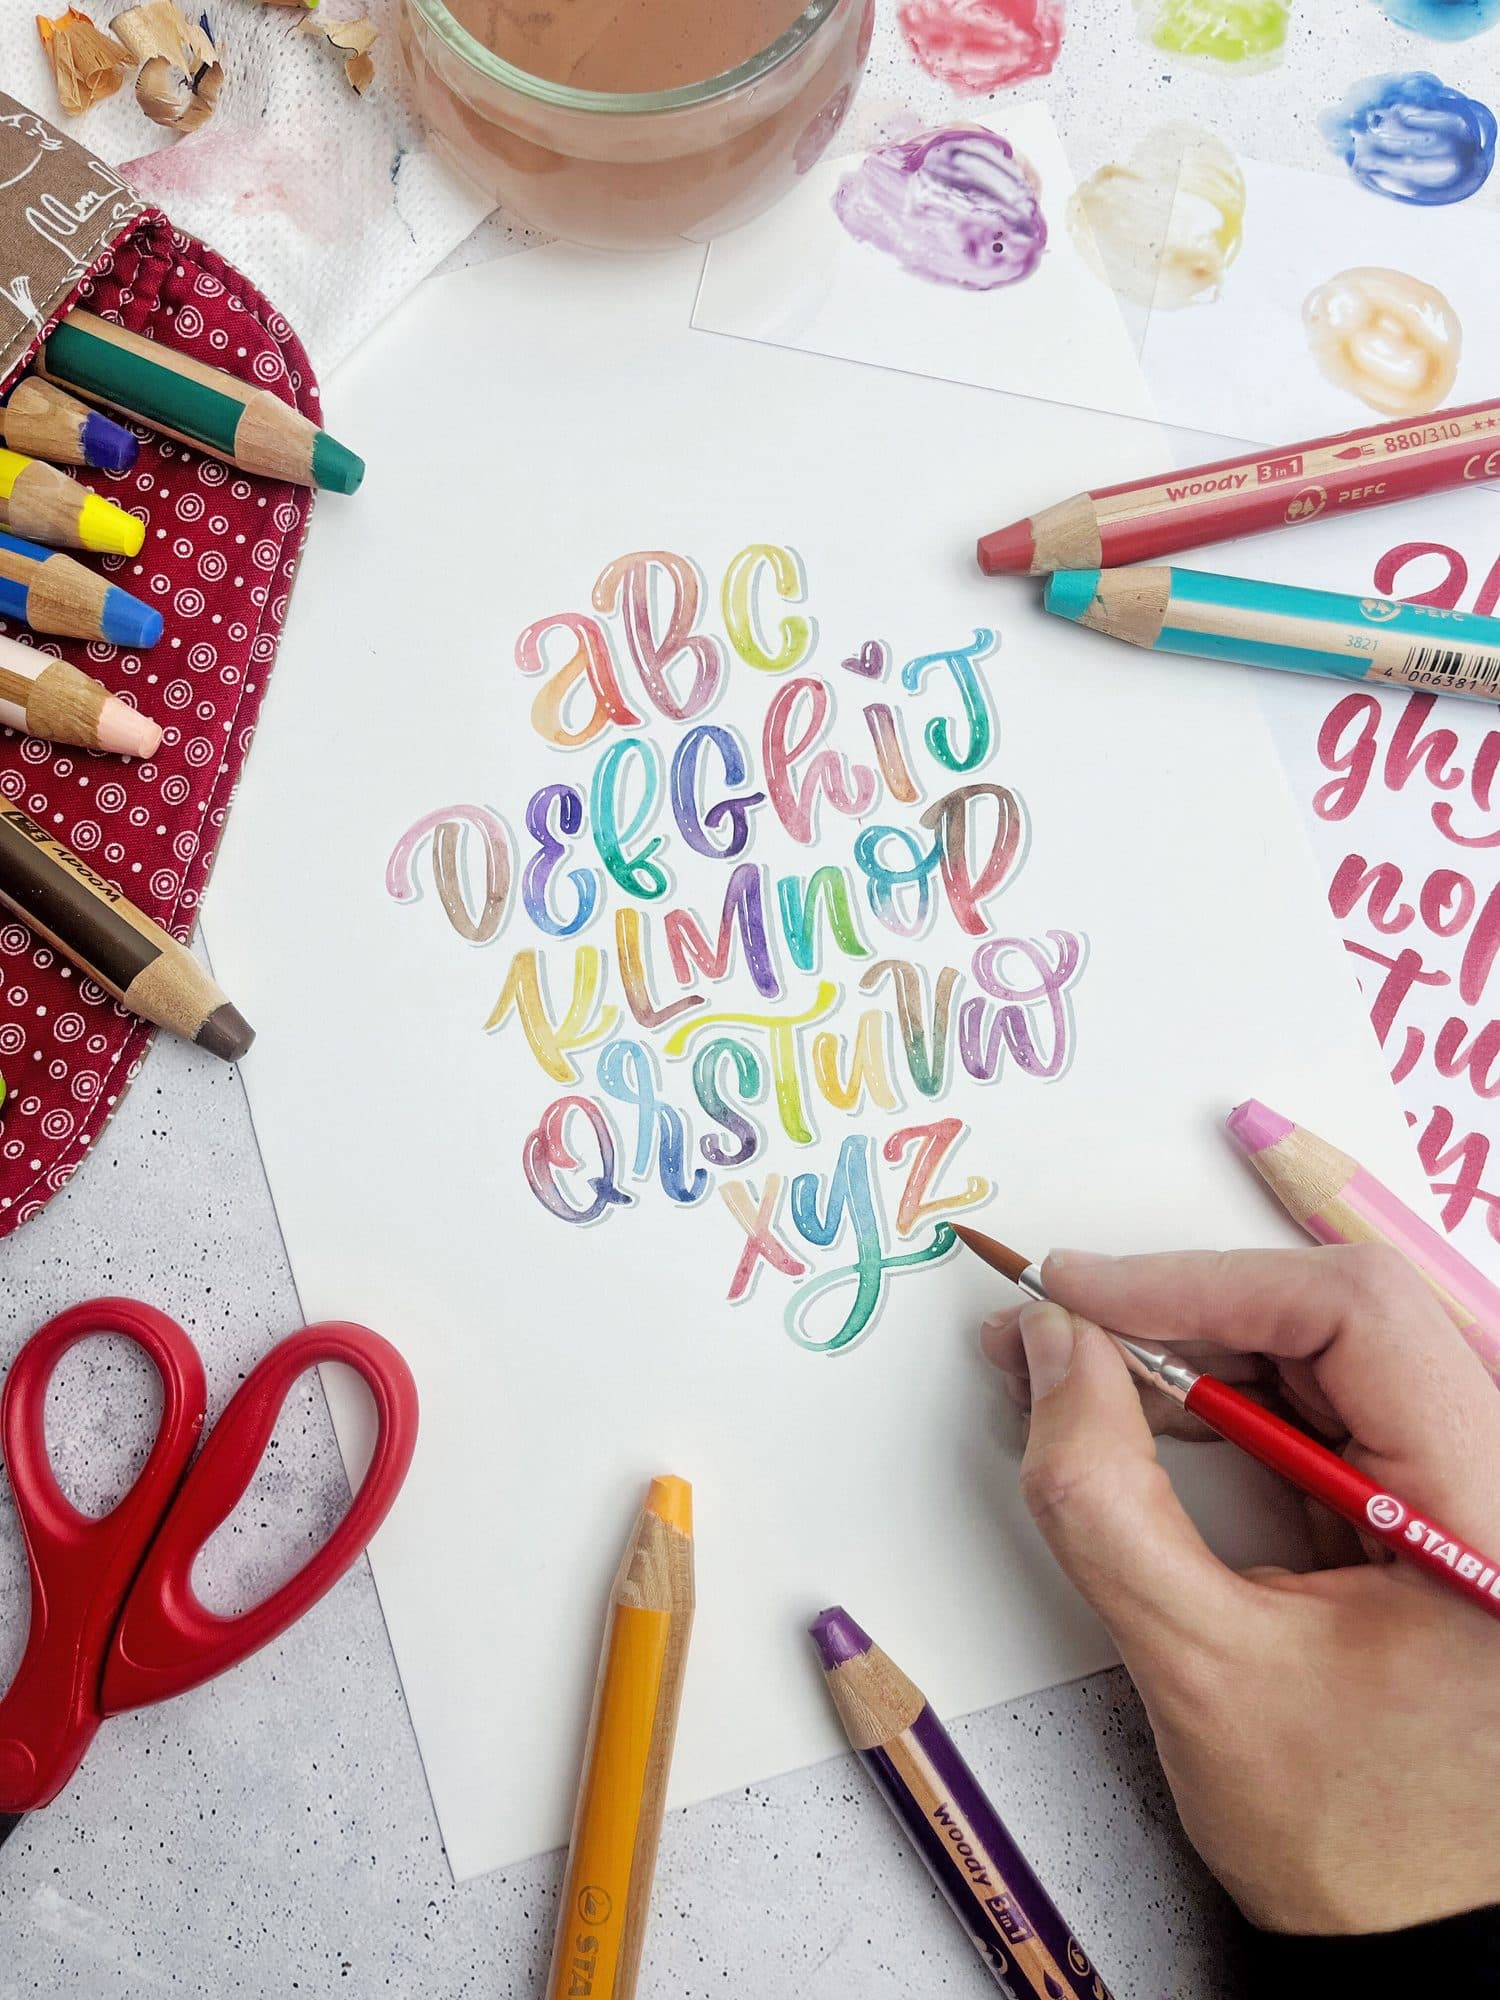 woody 3 in 1 880/310 ★★
PEFC CE
PEFC
3821
4 006381 1
aBC
DEfGhiJ
KLMNOP
QRSTUVW
XYZ
ghi
no
T,u
y
woody 3 in 1
STABIL
woody 3 in 1
STA